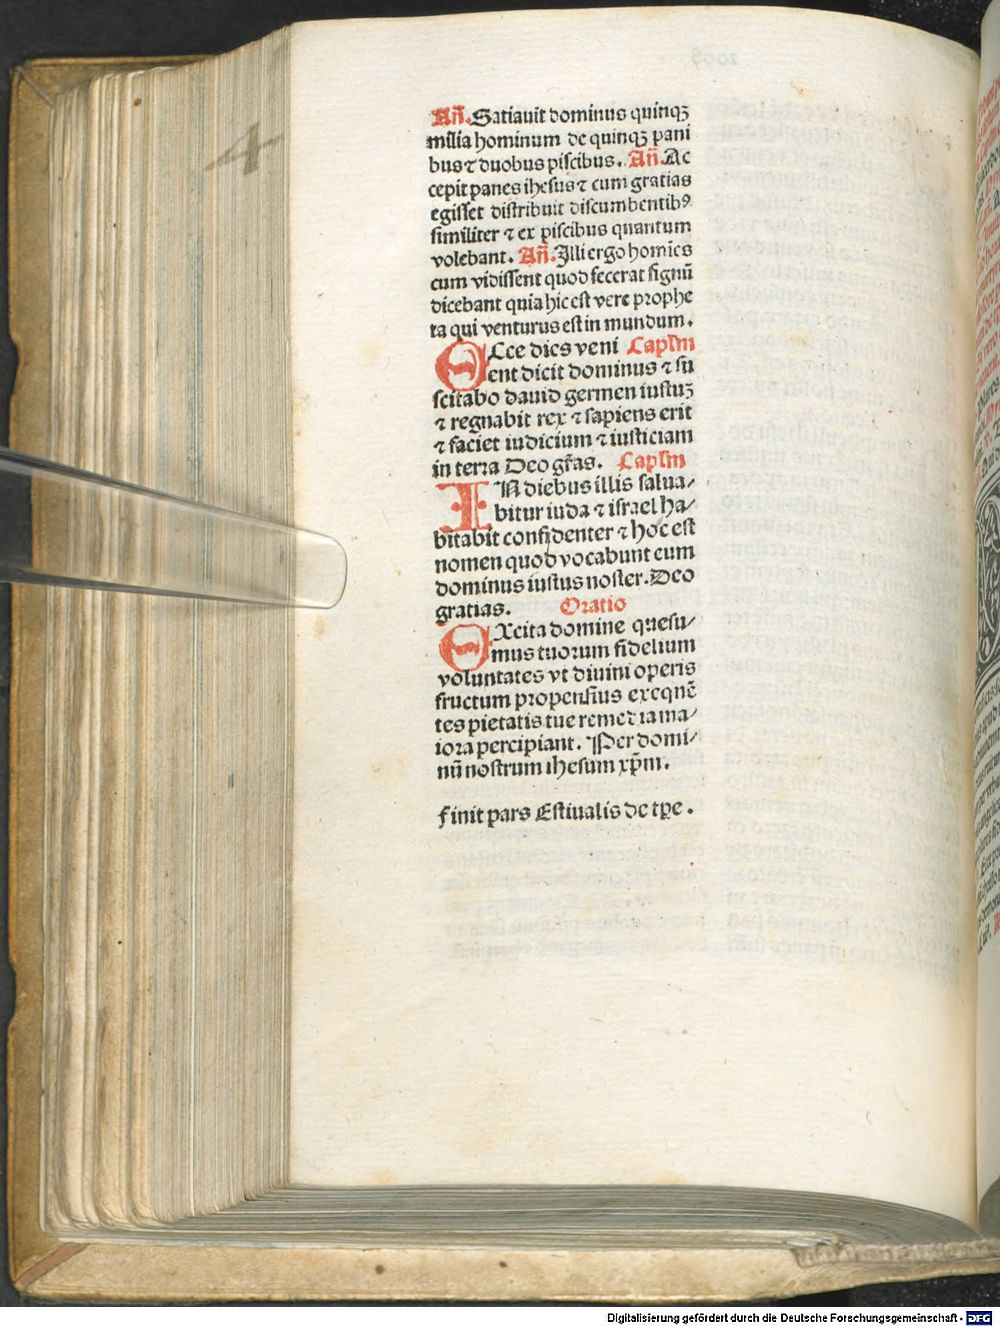 Añ. Satiavit dominus quinqꝫ
milia hominum de quinqꝫ pani
bus ⁊ duobus piscibus. Añ. Ac
cepit panes ihesus ⁊ cum gratias
egisset distribuit discumbentibꝰ
similiter ⁊ ex piscibus quantum
volebant. Añ. Illi ergo homīes
cum vidissent quod fecerat signū
dicebant quia hic est vere prophe
ta qui venturus est in mundum.
ECce dies veni Caplm
ent dicit dominus ⁊ su
scitabo dauid germen iustuꝫ
⁊ regnabit rex ⁊ sapiens erit
⁊ faciet iudicium ⁊ iusticiam
in terra Deo gr̄as. Caplm
IN diebus illis salua⸗
bitur iuda ⁊ israel ha⸗
bitabit confidenter ⁊ hoc est
nomen quod vocabunt eum
dominus iustus noster. Deo
gratias. Oratio
EXcita domine quesu⸗
mus tuorum fidelium
voluntates vt diuini operis
fructum propensius exequē
tes pietatis tue remedia ma⸗
iora percipiant. Per domi⸗
nū nostrum ihesum xp̄m.
Finit pars Estiualis de tp̄e.
4
Digitalisierung gefördert durch die Deutsche Forschungsgemeinschaft - DFG